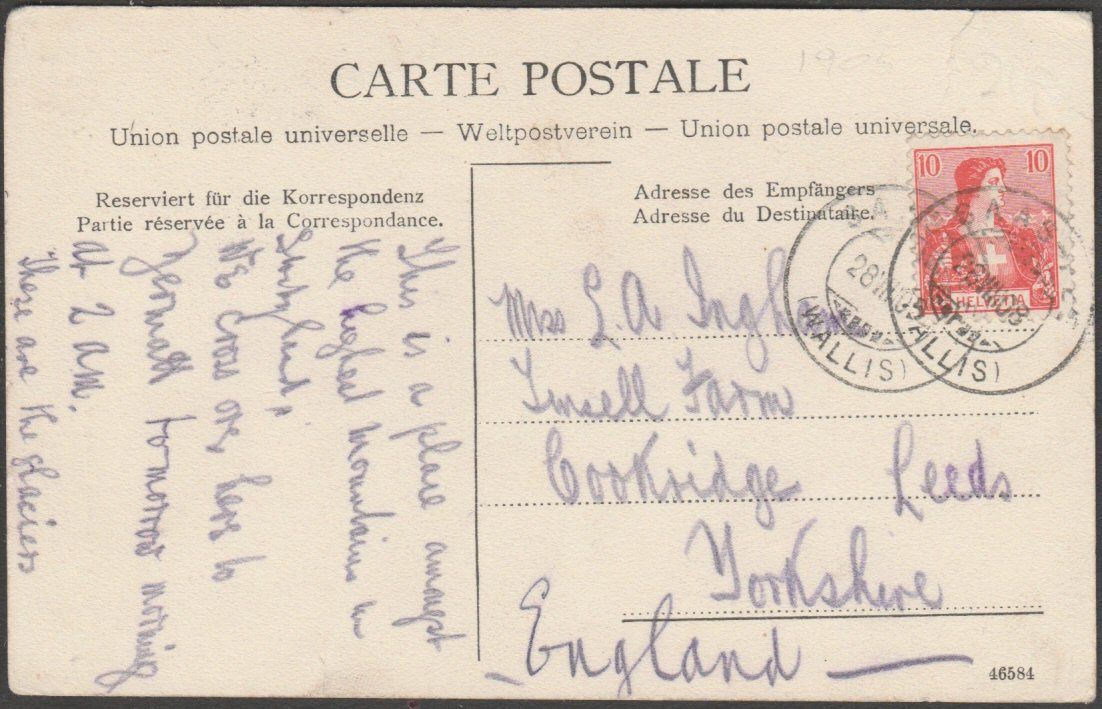 CARTE POSTALE
Union postale universelle — Weltpostverein — Union postale universale.
Reserviert für die Korrespondenz
Partie réservée à la Correspondance.
Adresse des Empfängers
Adresse du Destinataire.
10 10
HELVETIA
(WALLIS)
This is a place amongst
the highest mountains in
We cross over here to
Zermatt tomorrow morning
at 2 AM.
These are the glaciers
Miss L. A.
Farm
Cookridge Leeds
Yorkshire
England —
46584